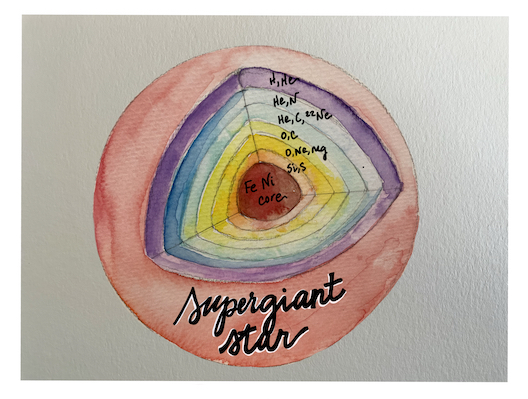 H, He
He, N
He, C, ²²Ne
O, C
O, Ne, Mg
Si, S
Fe Ni
core
Supergiant
star